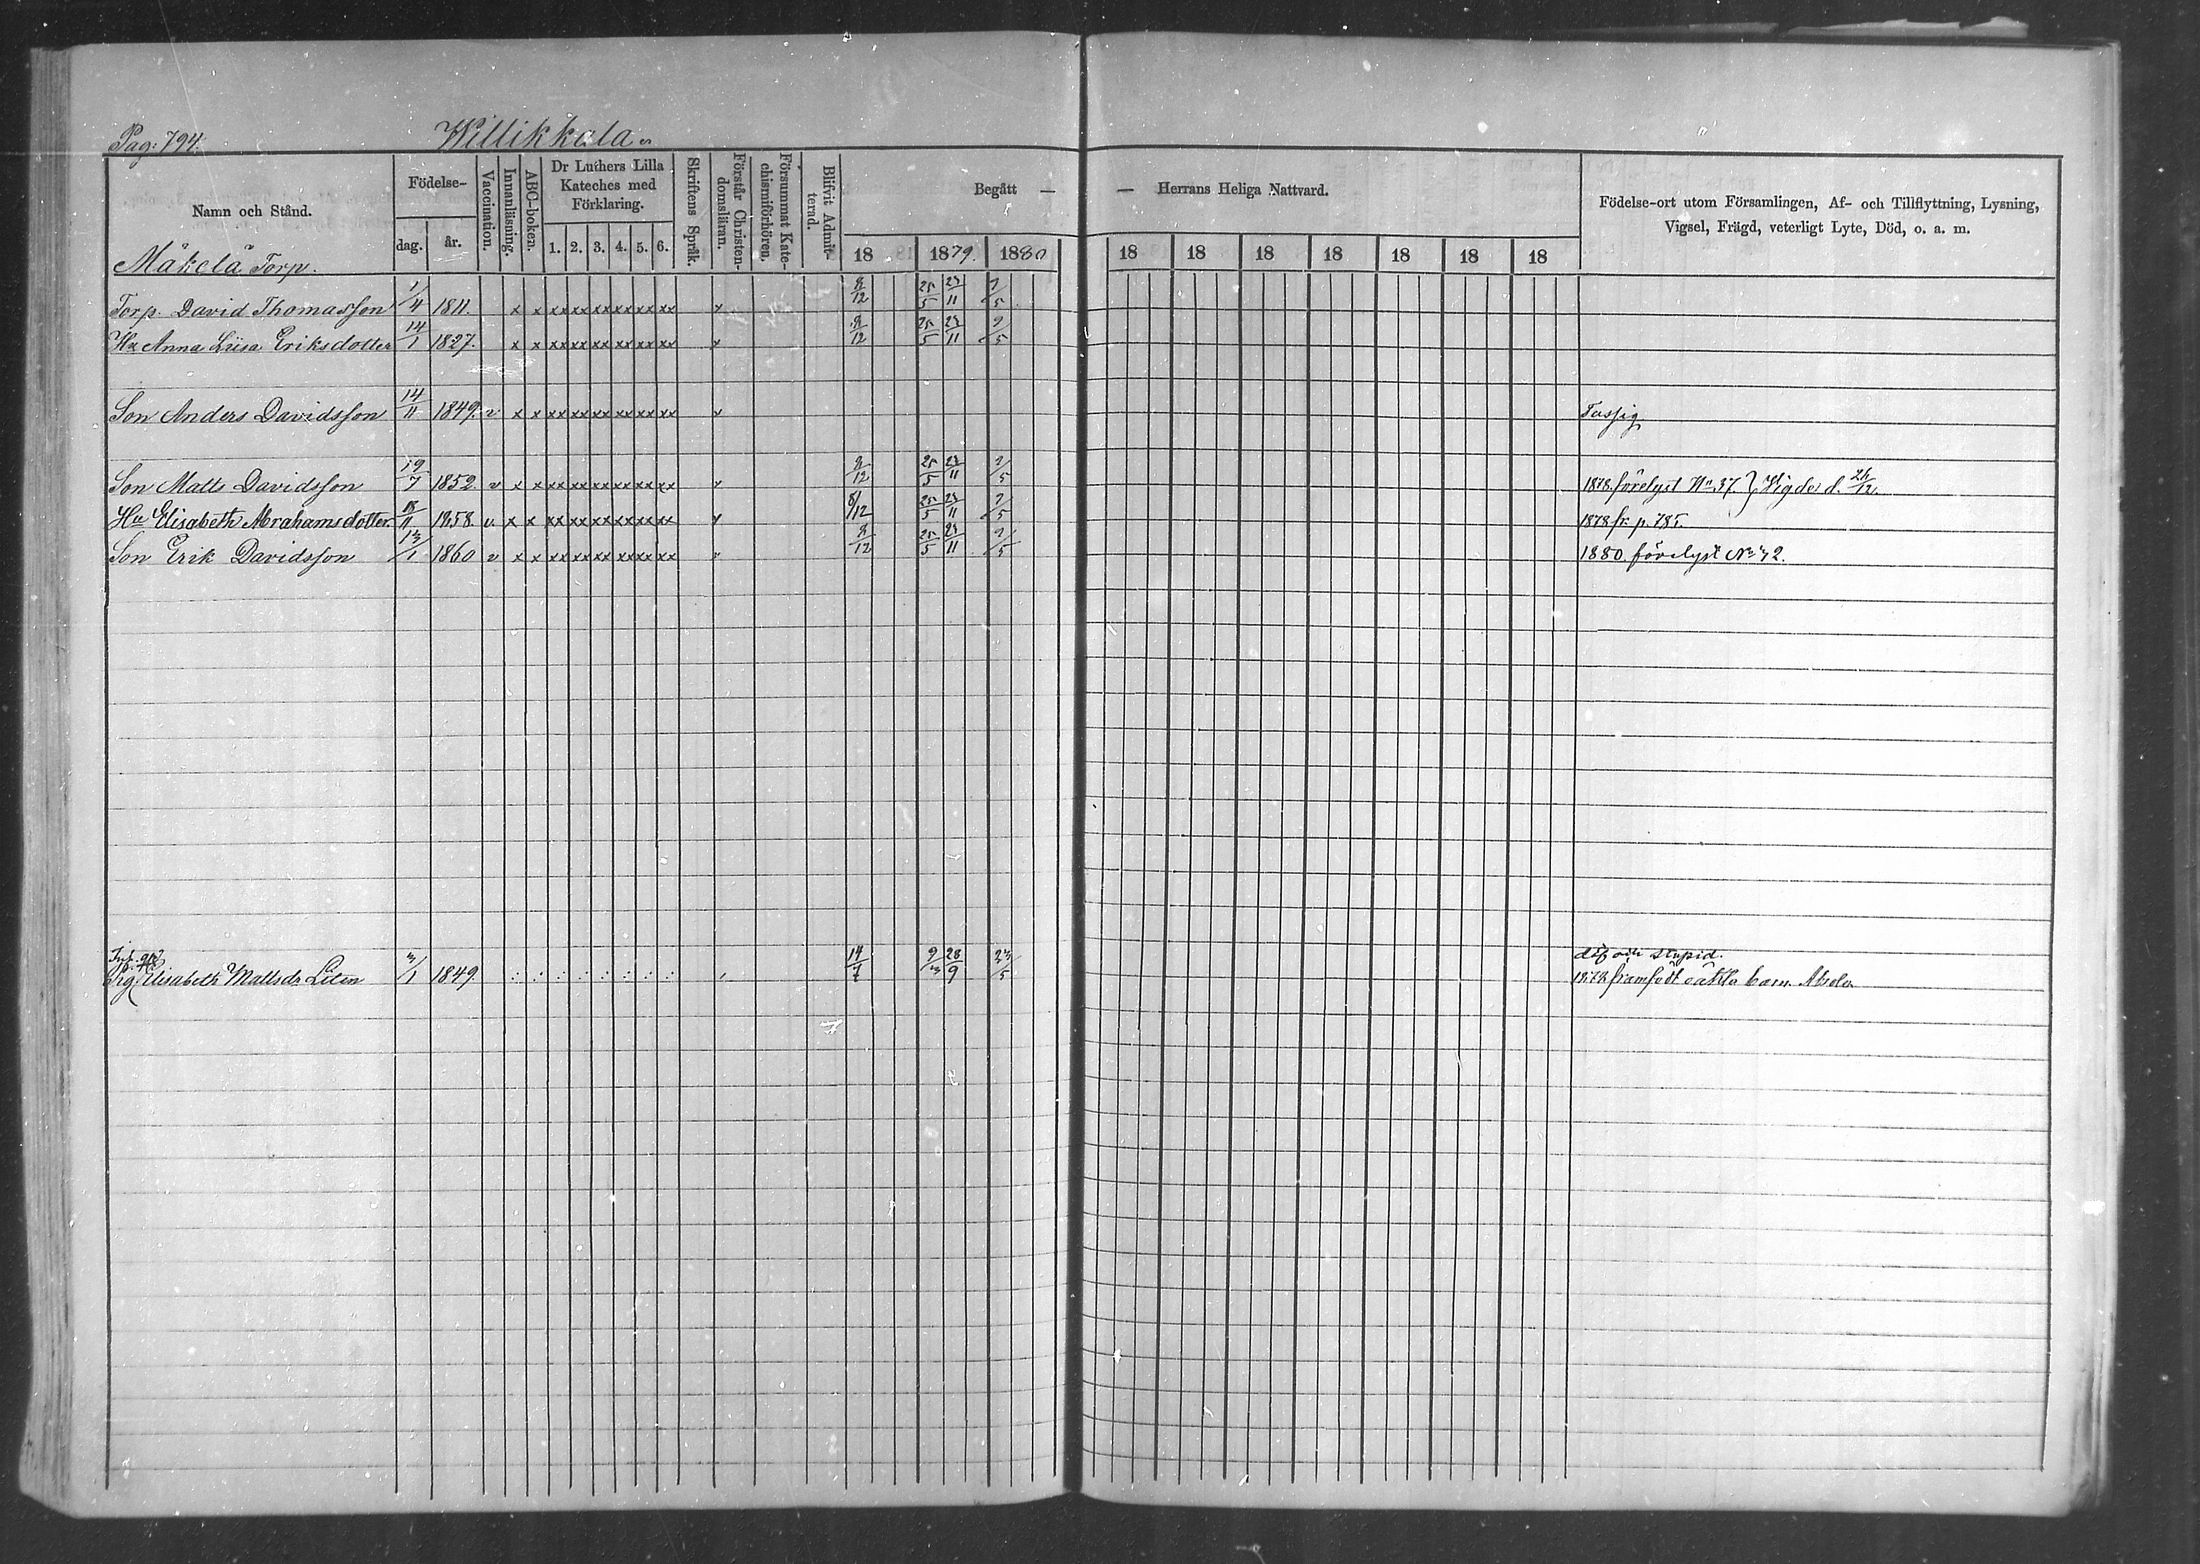 Pag: 794. Willikkala
Namn och Stånd. Födelse- dag. år. Vaccination. Innanläsning. ABC-boken. Dr Luthers Lilla Kateches med Förklaring. 1. 2. 3. 4. 5. 6. Skriftens Språk. Förstår Christendomsläran. Försummat Katechismiförhören. Blifvit Admitterad. Begått — — Herrans Heliga Nattvard. Födelse-ort utom Församlingen, Af- och Tillflyttning, Lysning, Vigsel, Frägd, veterligt Lyte, Död, o. a. m.
18 1879. 1880 18 18 18 18 18 18 18
Mäkelä Torp.
Torp. David Thomasson 1/4 1811. x x xx xx xx xx xx xx v 8/12 25/5 23/11 9/5
Hu Anna Liisa Eriksdotter 14/1 1827. x x xx xx xx xx xx xx v 8/12 25/5 23/11 9/5
Son Anders Davidsson 14/11 1849. v x x xx xx xx xx xx xx v Tassig
Son Matts Davidsson 19/7 1852 v x x xx xx xx xx xx xx v 8/12 25/5 23/11 9/5 1878 förelyst No 37. } Vigde d. 26/12.
Hu Elisabeth Abrahamsdotter 18/11 1958 v x x xx xx xx xx xx xx v 8/12 25/5 23/11 9/5 1878 fr. p. 785.
Son Erik Davidsson 13/1 1860 v x x xx xx xx xx xx xx v 8/12 25/5 23/11 9/5 1880. förelyst No 42.
döf och stupid.
Elisabeth Mattsdr Liten 1849. 14/7 28/9 1878 framfödt oäkta barn